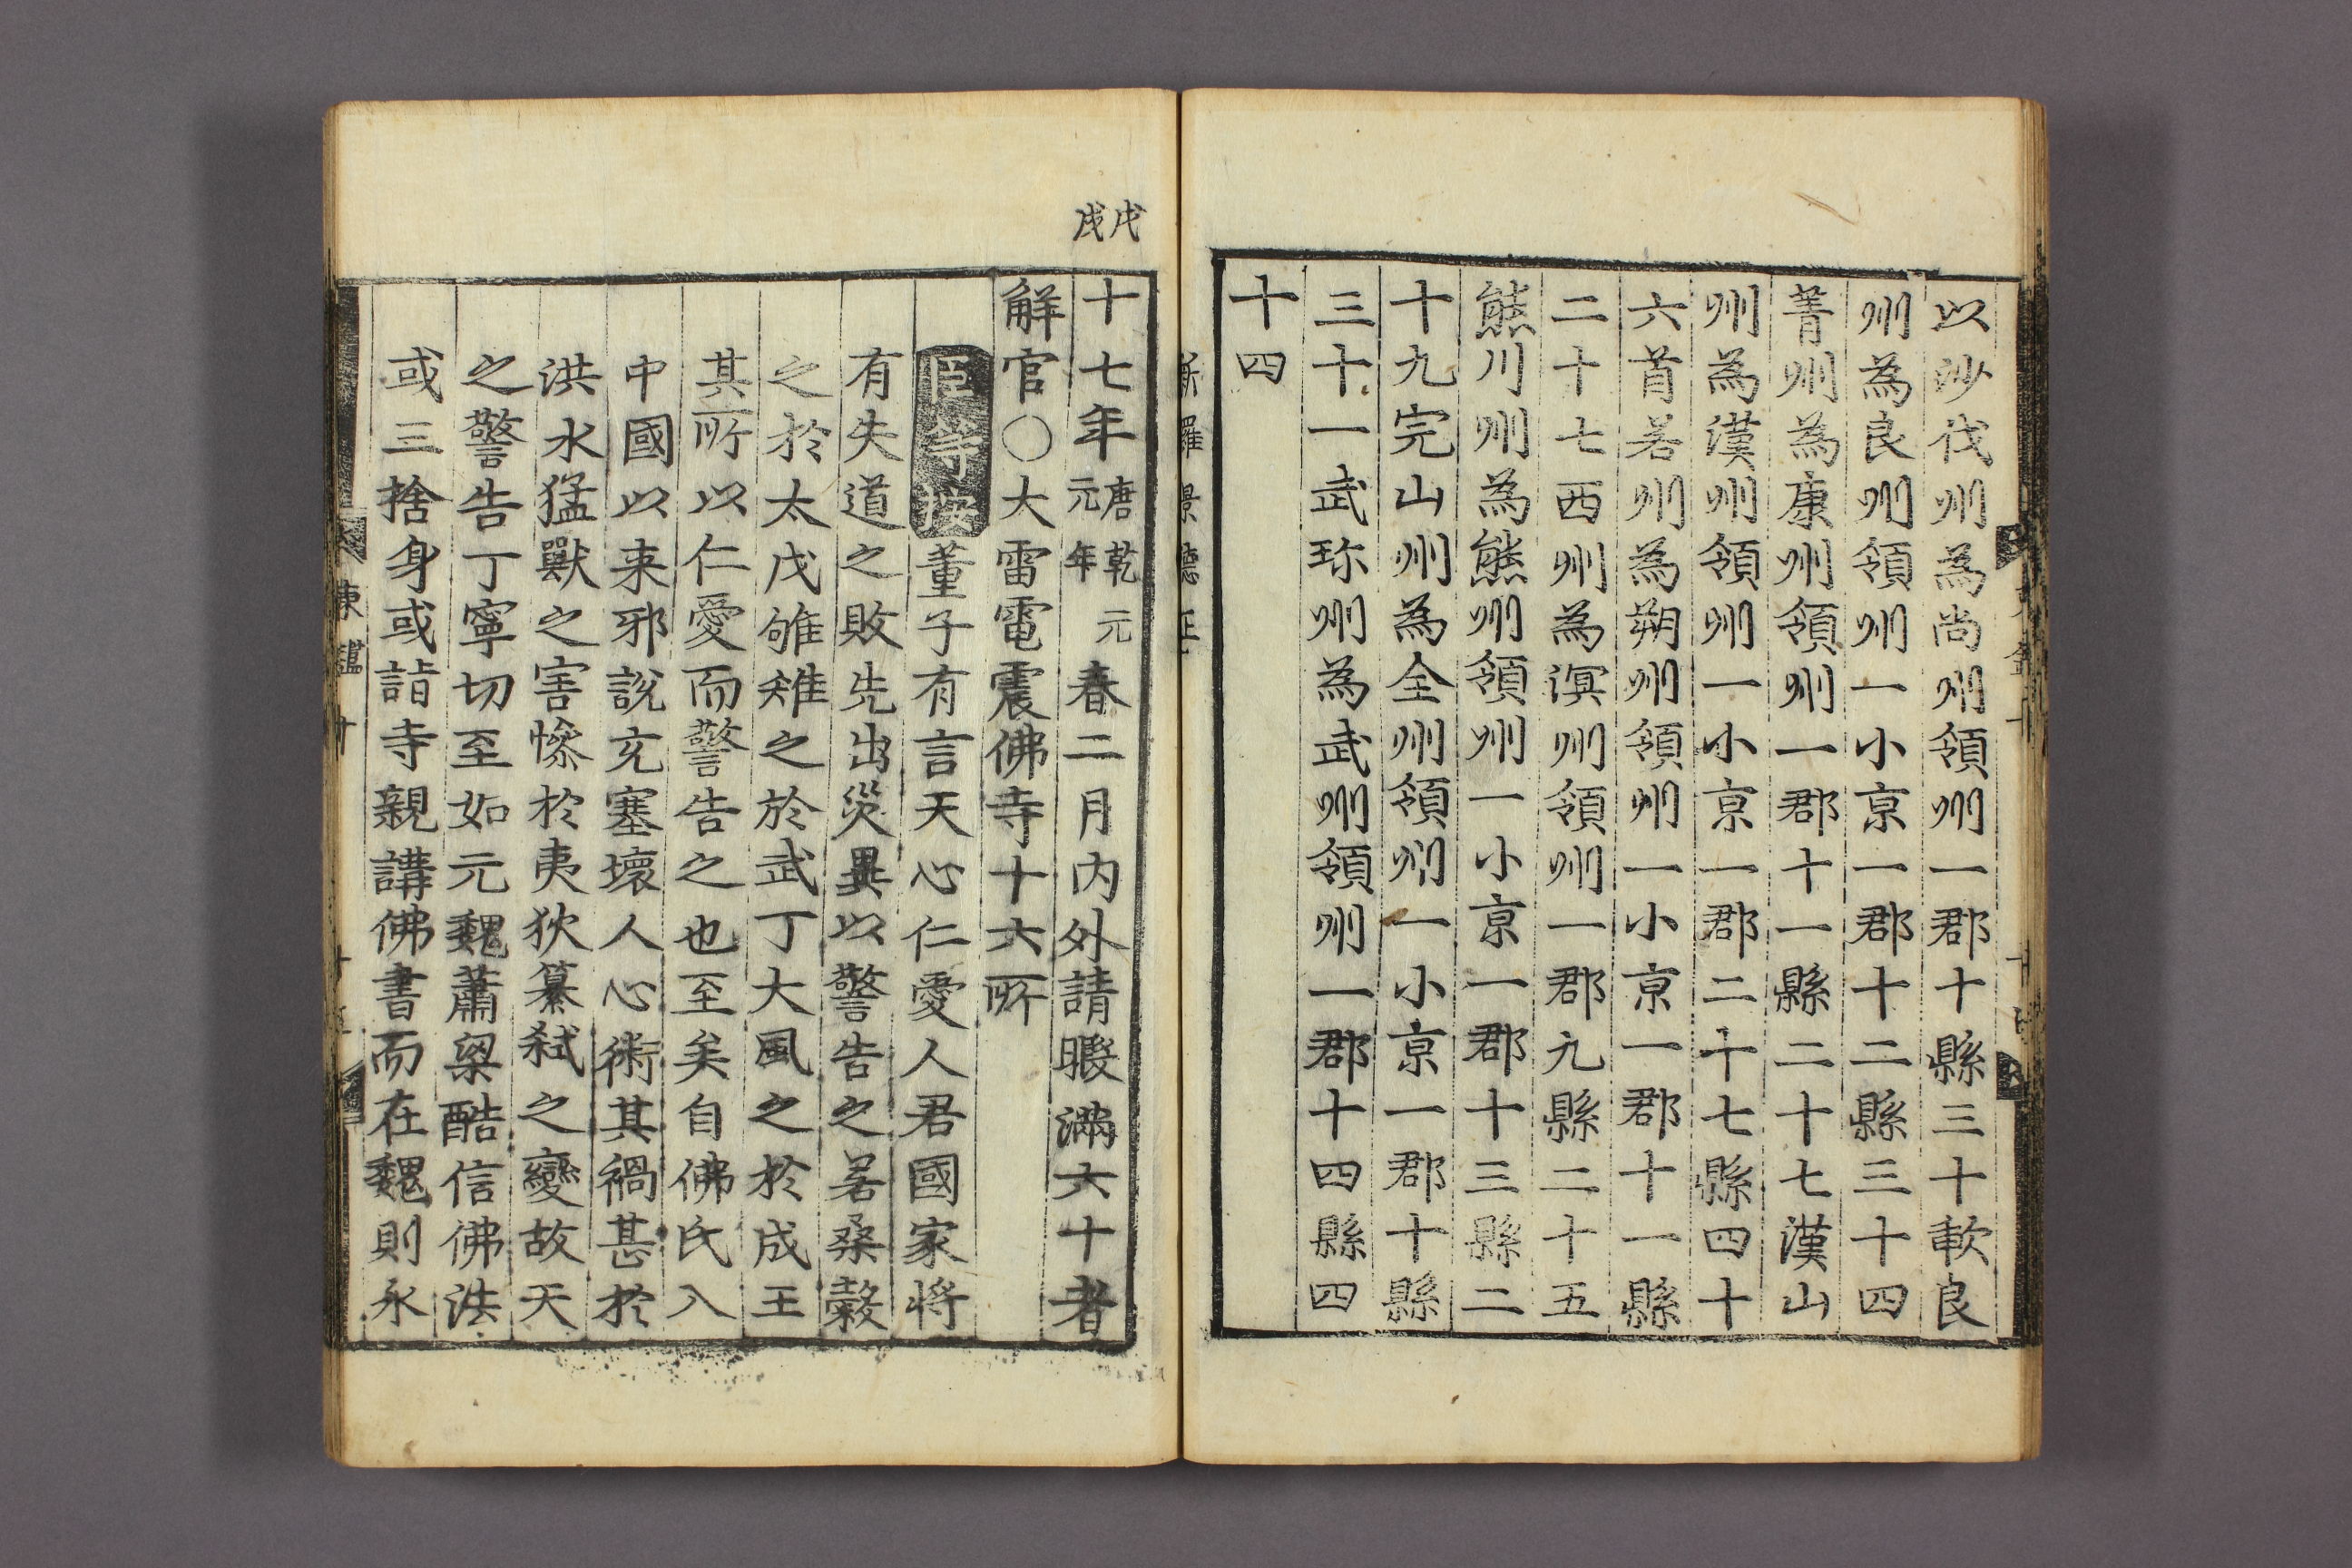 以沙伐州爲尙州領州一郡十縣三十歃良
州爲良州領州一小京一郡十二縣三十四
菁州爲康州領州一郡十一縣二十七漢山
州爲漢州領州一小京一郡二十七縣四十
六首若州爲朔州領州一小京一郡十一縣
二十七西州爲溟州領州一郡九縣二十五
熊川州爲熊州領州一小京一郡十三縣二
十九完山州爲全州領州一小京一郡十縣
三十一武珍州爲武州領州一郡十四縣四
十四
新羅景德王
戊戌
十七年唐乾元元年春二月內外請暇滿六十者
解官○大雷電震佛寺十六所
臣等按董子有言天心仁愛人君國家將
有失道之敗先出災異以警告之若桑穀
之於太戊雊雉之於武丁大風之於成王
其所以仁愛而警告之也至矣自佛氏入
中國以來邪說充塞壞人心術其禍甚於
洪水猛獸之害慘於夷狄簒弑之變故天
之警告丁寧切至如元魏蕭梁酷信佛法
或三捨身或詣寺親講佛書而在魏則永
東鑑十